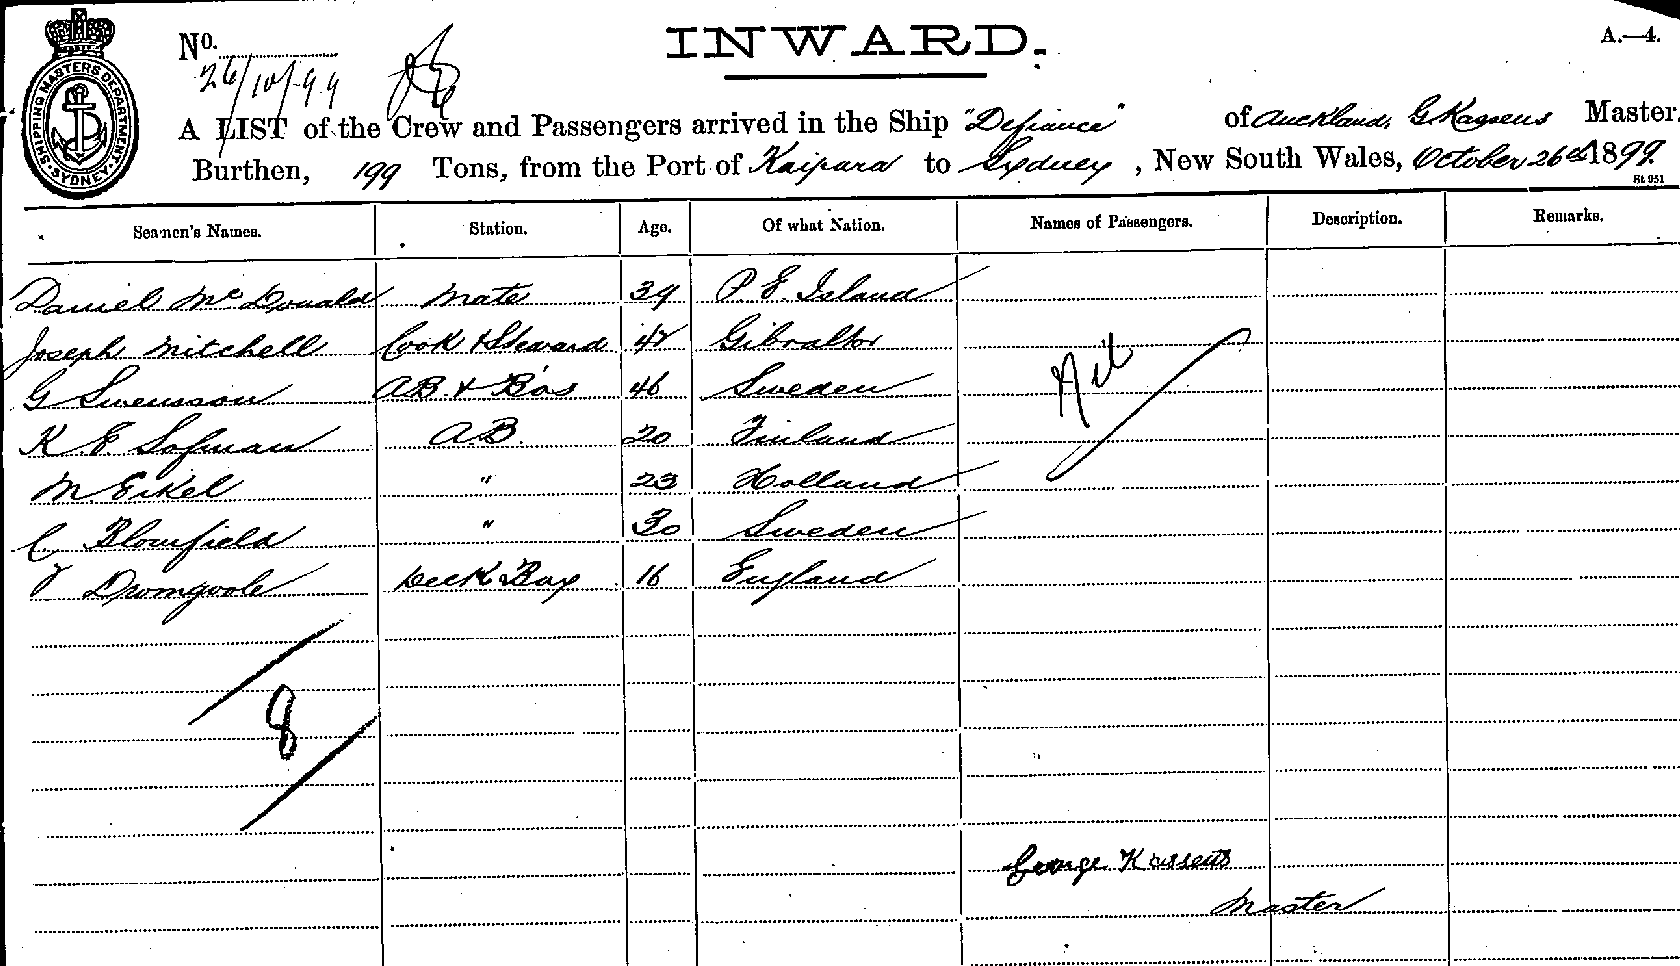 INWARD.
A.—4.
No.
26/10/99
SHIPPING MASTERS DEPARTMENT SYDNEY
A LIST of the Crew and Passengers arrived in the Ship "Defiance" of Auckland, G Kassens Master,
Burthen, 199 Tons, from the Port of Kaipara to Sydney, New South Wales, October 26th 1899.
St 951
Seamen's Names. Station. Age. Of what Nation. Names of Passengers. Description. Remarks.
Daniel McDonald Mate 39 P E Island
Joseph Mitchell Cook & Steward 42 Gibraltor Nil
G Swensson AB & Bos 46 Sweden
K E Sofman AB. 20 Finland
M Eikel " 23 Holland
C Blomfield " 30 Sweden
J Dromgoole Deck Boy 16 England
8
George Kassens
Master